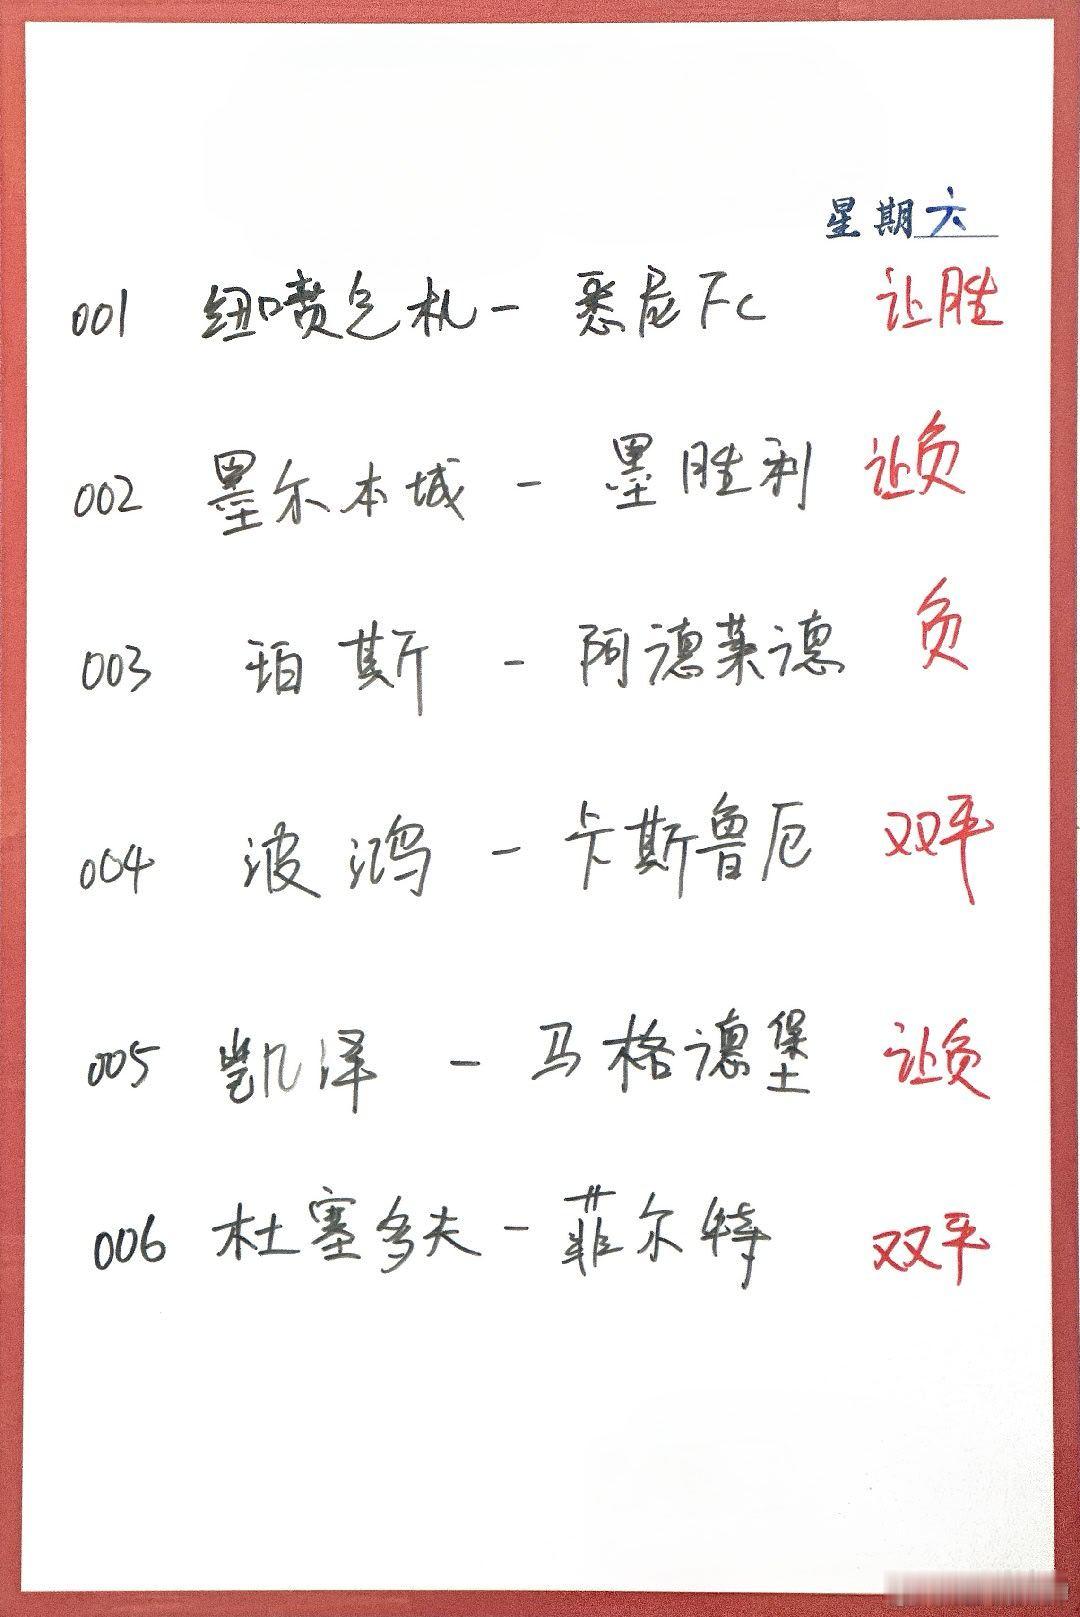 星期六
001 纽喷气机 - 悉尼Fc 让胜
002 墨尔本城 - 墨胜利 让负
003 珀斯 - 阿德莱德 负
004 波鸿 - 卡斯鲁厄 双平
005 凯泽 - 马格德堡 让负
006 杜塞多夫 - 菲尔特 双平